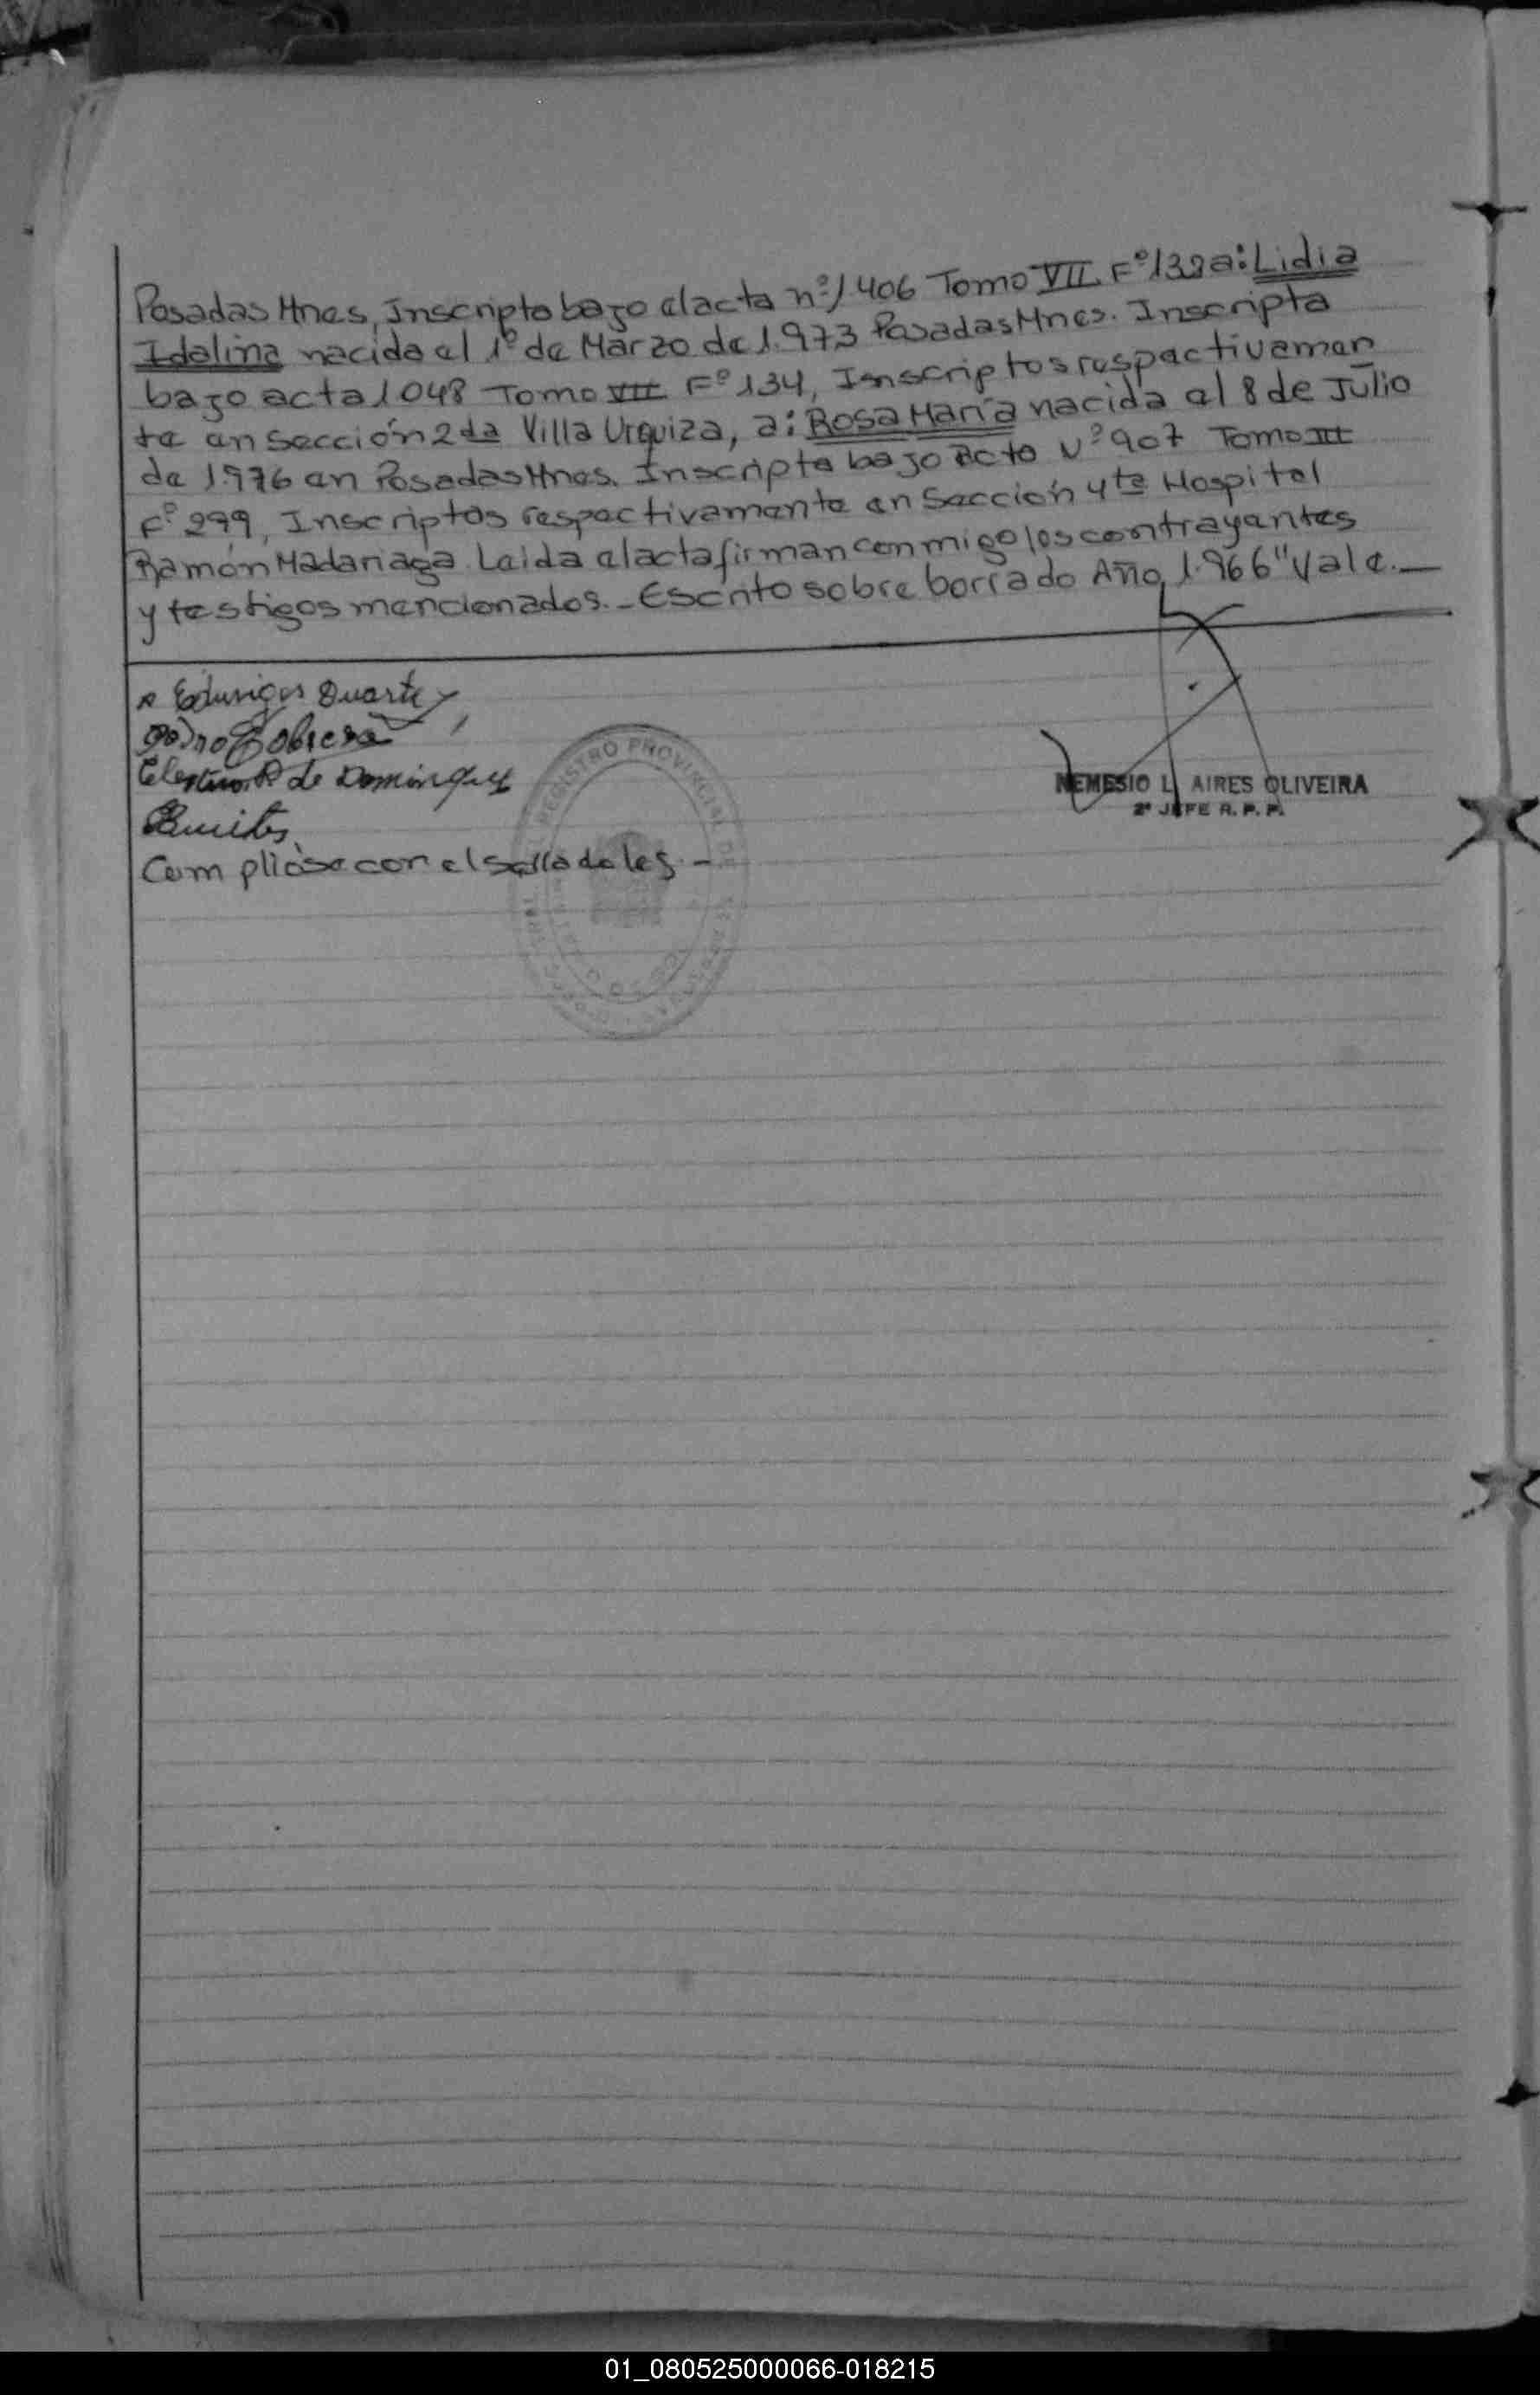 Posadas Mnes, Inscripto bajo el acta nº 1.406 Tomo VII Fº 132 a: Lidia
Idalina nacida el 1º de Marzo de 1.973 Posadas Mnes. Inscripta
bajo acta 1048 Tomo VII Fº 134, Inscriptos respectivamen
te en Sección 2da Villa Urquiza, a: Rosa María nacida el 8 de Julio
de 1.976 en Posadas Mnes. Inscripta bajo Acta Nº 907 Tomo III
Fº 299, Inscriptos respectivamente en Sección 4ta Hospital
Ramón Madariaga. Leida el acta firman conmigo los contrayantes
y testigos mencionados.- Escrito sobre borrado Año 1.966" Vale.—
Eduviges Duarte
Pedro Cobrera
Celestina R de Dominguez
Benites
NEMESIO L. AIRES OLIVEIRA
2º JEFE R. P. P.
Cumpliose con el sellado ley.-
REGISTRO PROVINCIAL DE
01_080525000066-018215